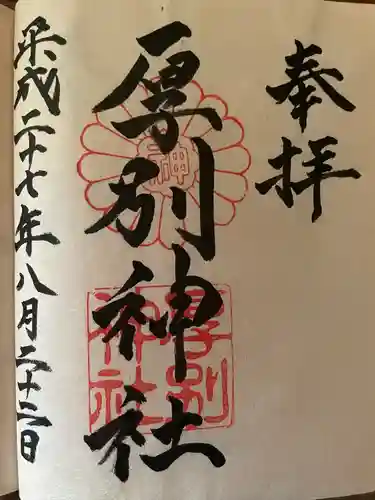 奉拝
厚別神社
神
厚別
神社
平成二十七年八月二十二日